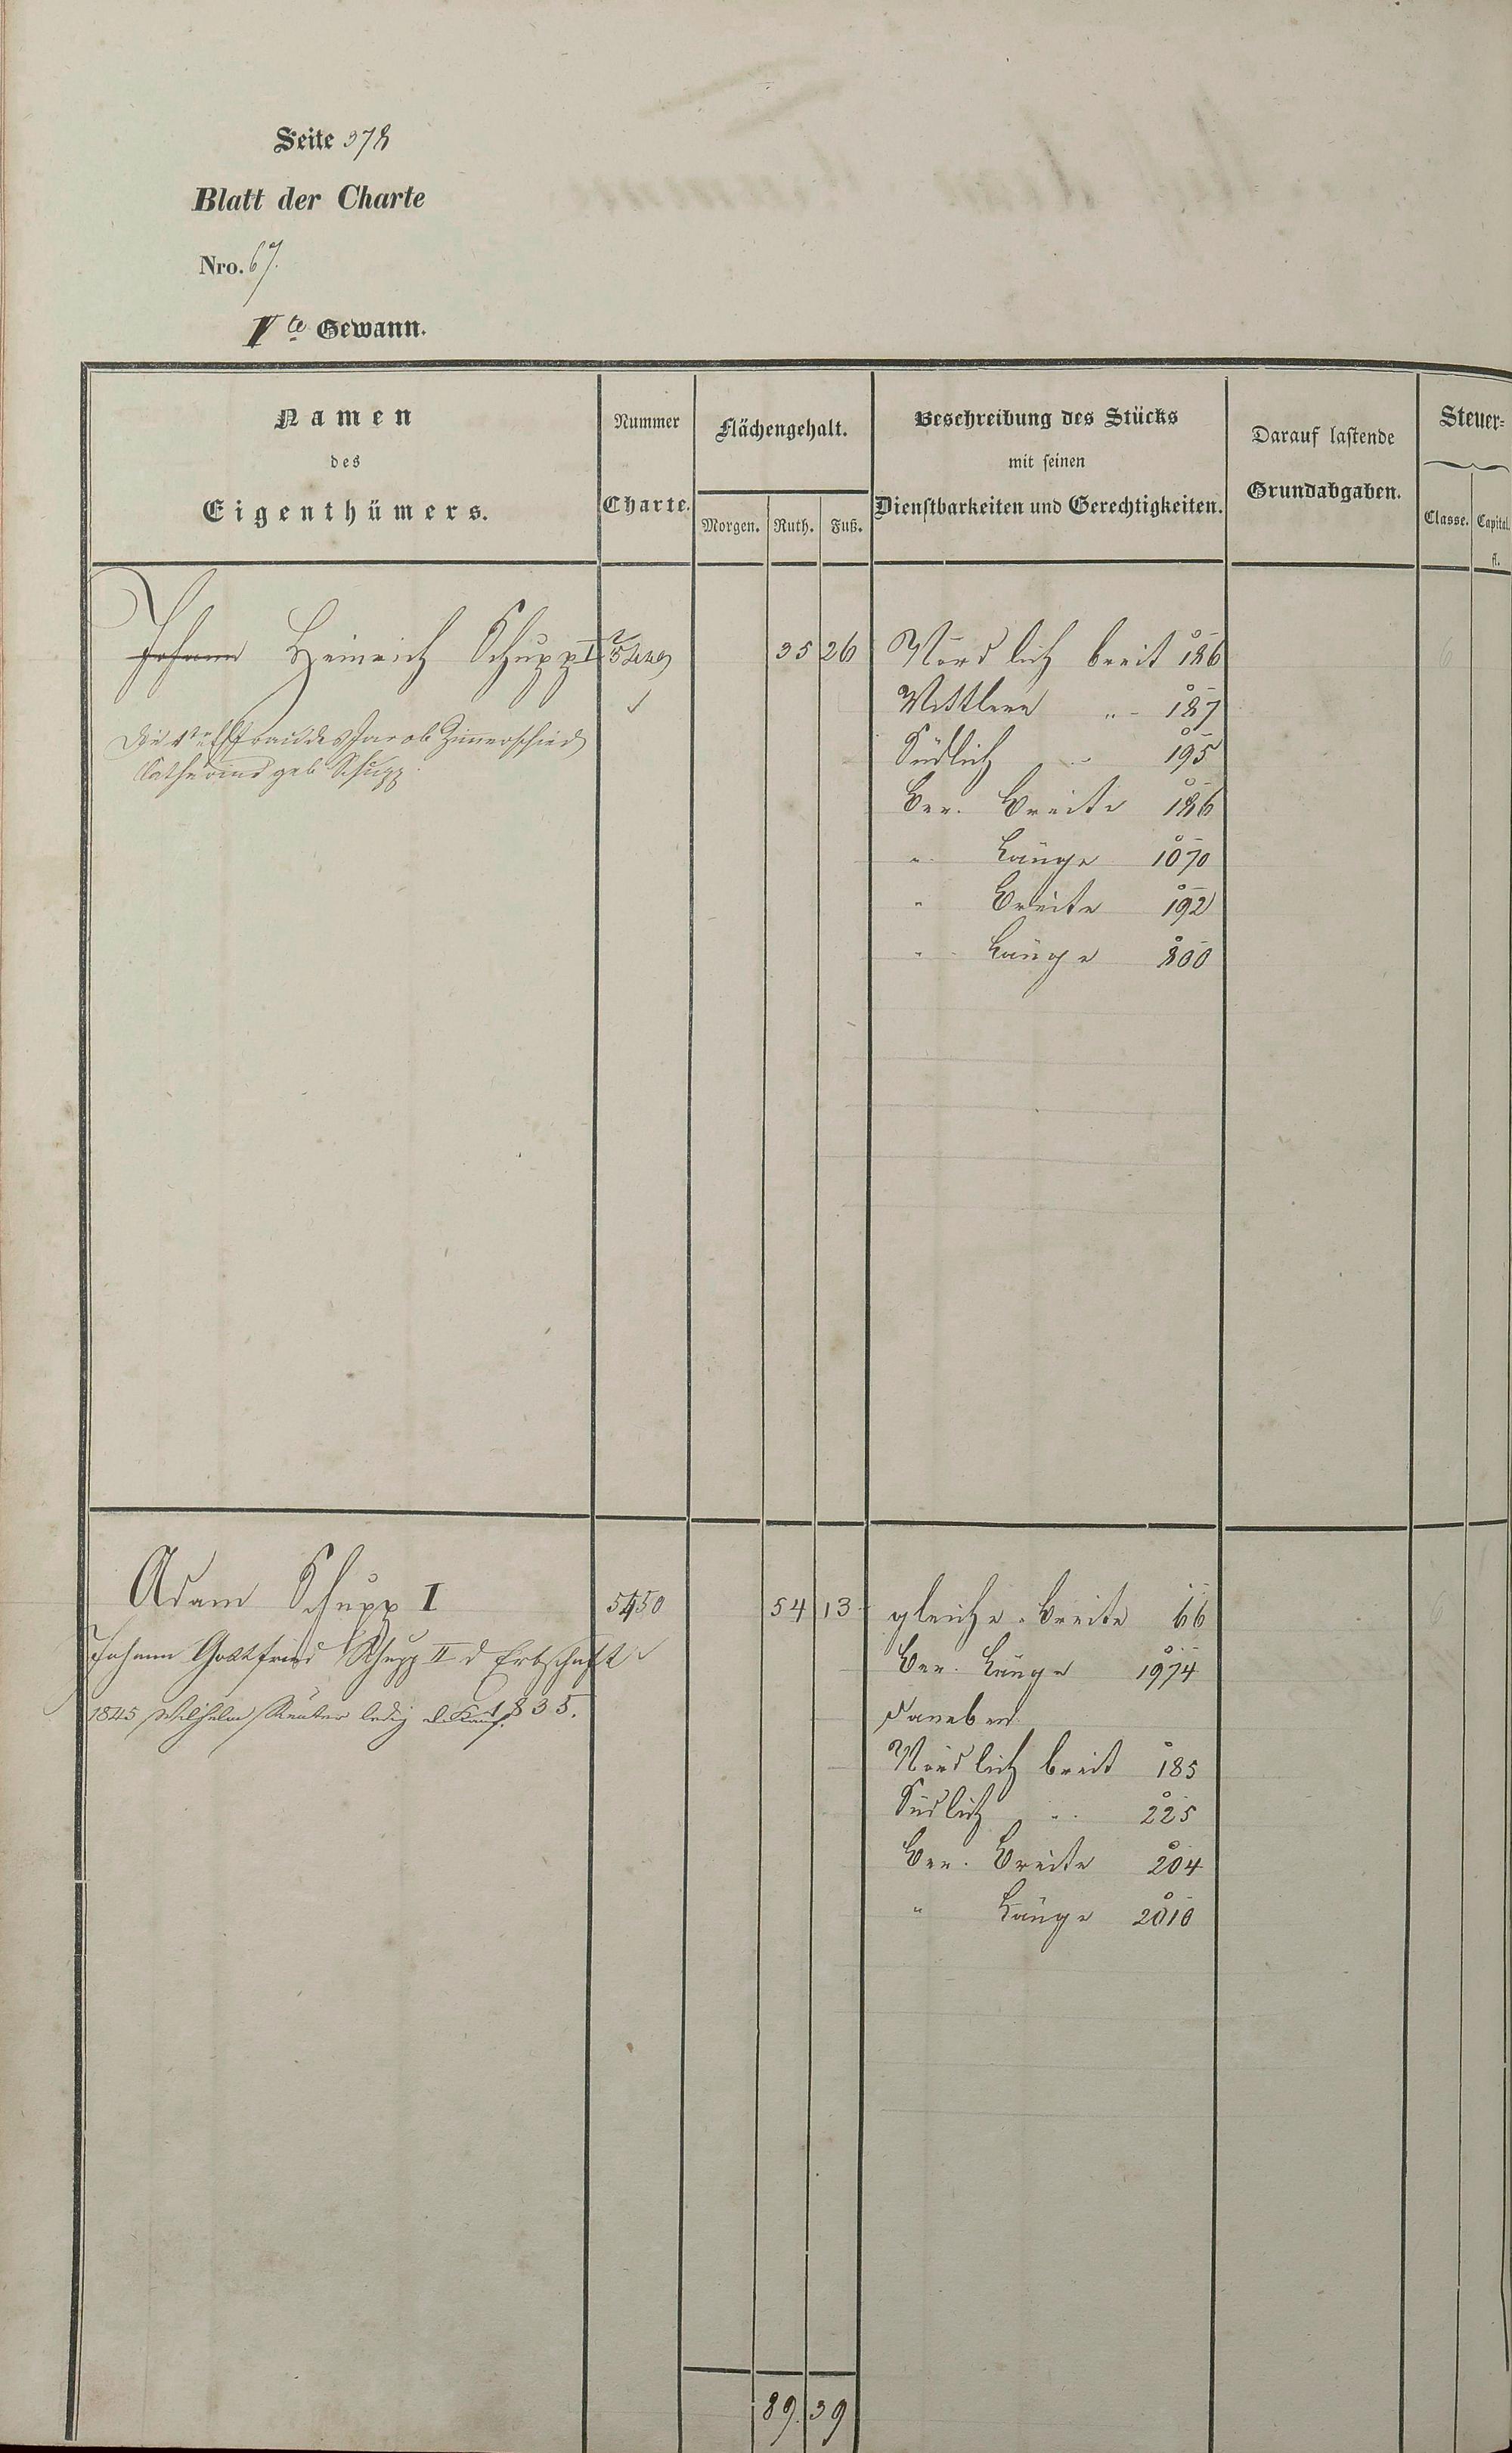 Seite 378
Blatt der Charte
Nro. 67.
Vte Gewann.
Namen
des
Eigenthümers.
Nummer
Charte.
Flächengehalt.
Morgen. Ruth. Fuß.
Beschreibung des Stücks
mit seinen
Dienstbarkeiten und Gerechtigkeiten.
Darauf lastende
Grundabgaben.
Steuer=
Classe. Capital.
fl.
Johann Heinrich Schupp I 5449 35 26 Nördlich breit 186 6
Mittlere " 187
Die Ehefrau des Jacob Zimerschied
Südlich " 195
Catharina geb Schupp
Ber. Breite 186
" Länge 1070
" Breite 192
" Länge 800
Adam Schupp I 5450 54 13 gleiche Breite 66 6
Johann Gottfried Schupp II d Erbschaft
Ber. Länge 1974
1835.
1845 Wilhelm Reuter ledig d. Kauf.
daneben
Nördlich breit 185
Südlich " 225
Ber. Breite 204
" Länge 2010
89. 39